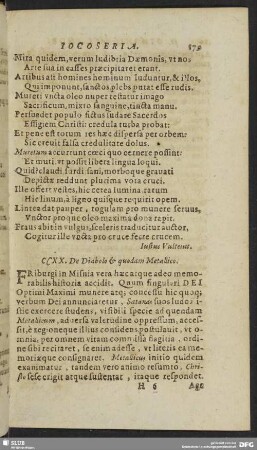 IOCOSERIA. 179
Mira quidem, verum ludibria Dæmonis, vt nos
Arte sua in casses præcipitaret erant.
Artibus alt homines hominum luduntur, & illos,
Qui imponunt, sanctos plebs putat esse rudis.
Mureti vncta oleo nuper testatur imago
Sacrificum, mixto sanguine, tincta manu.
Persuadet populo fictus sudare Sacerdos
Effigiem Christi: credula turba probat:
Et pene est totum res hæc dispersa per orbem:
Sic creuit falsa credulitate dolus.
Muretum accurrunt cœci quo cernere possint:
Et muti, vt possit libera lingua loqui.
Quid? claudi, surdi sani, morboque grauati
Depictæ reddunt plurima vota cruci.
Ille offert vestes, hic cerea lumina, rarum
Hic linum, à ligno quisque requirit opem.
Lintea dat pauper, togulam pro munere seruus,
Vnctor proque oleo maxima dona rapit.
Fraus abit in vulgus, sceleris traducitur auctor,
Cogitur ille vncta pro cruce ferre crucem.
Iustus Vulteius.
CCXX. De Diabolo & quodam Metallico.
FRiburgi in Misnia vera hæc atque adeo memo-
rabilis historia accidit. Quum singulari DEI
Optimi Maximi munere atq; concessu hic quoq;
verbum Dei annunciaretur, Satanas suos ludos i-
stic exercere studens, visibili specie ad quendam
Metallicum, aduersa valetudine oppressum, acces-
sit, è regioneque illius considens postulauit, vt o-
mnia, per omnem vitam commissa flagitia, ordi-
ne sibi recitaret, se enim adesse, vt literis ea me-
moriæque consignaret. Metallicus initio quidem
exanimatur, tandem vero animo resumto, Chri-
sto sese erigit atque sustentat, itaque respondet.
H 6 Age
SLUB